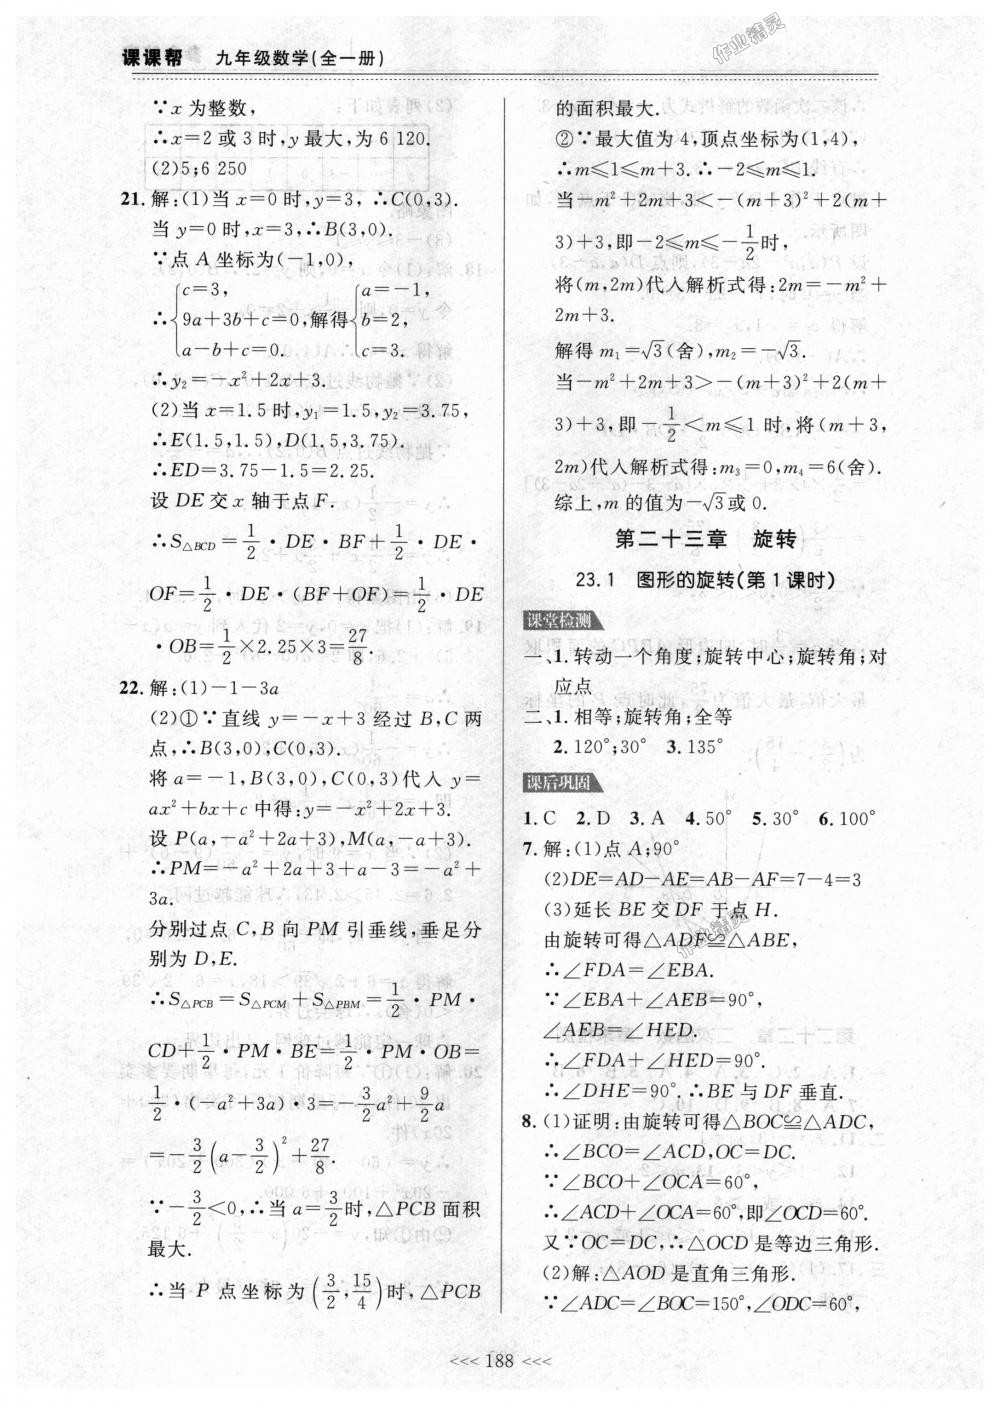 课课帮 九年级数学(全一册)
∵x 为整数,
∴x=2 或 3 时,y 最大,为 6 120.
(2)5;6 250
21. 解:(1)当 x=0 时,y=3, ∴C(0,3).
当 y=0 时,x=3,∴B(3,0).
∵点 A 坐标为(-1,0),
∴{c=3, 9a+3b+c=0, a-b+c=0. 解得{a=-1, b=2, c=3.
∴y₂=-x²+2x+3.
(2)当 x=1.5 时,y₁=1.5,y₂=3.75,
∴E(1.5,1.5),D(1.5,3.75).
∴ED=3.75-1.5=2.25.
设 DE 交 x 轴于点 F.
∴S△BCD=1/2·DE·BF+1/2·DE·
OF=1/2·DE·(BF+OF)=1/2·DE
·OB=1/2×2.25×3=27/8.
22. 解:(1)-1-3a
(2)①∵直线 y=-x+3 经过 B,C 两
点,∴B(3,0),C(0,3).
将 a=-1,B(3,0),C(0,3)代入 y=
ax²+bx+c 中得:y=-x²+2x+3.
设 P(a,-a²+2a+3),M(a,-a+3).
∴PM=-a²+2a+3+a-3=-a²+
3a.
分别过点 C,B 向 PM 引垂线,垂足分
别为 D,E.
∴S△PCB=S△PCM+S△PBM=1/2·PM·
CD+1/2·PM·BE=1/2·PM·OB=
1/2·(-a²+3a)·3=-3/2a²+9/2a
=-3/2(a-3/2)²+27/8.
∵-3/2<0,∴当 a=3/2时,△PCB 面积
最大.
∴当 P 点坐标为(3/2,15/4)时,△PCB
的面积最大.
②∵最大值为 4,顶点坐标为(1,4),
∴m≤1≤m+3.∴-2≤m≤1.
当-m²+2m+3<-(m+3)²+2(m+
3)+3,即-2≤m≤-1/2时,
将(m,2m)代入解析式得:2m=-m²+
2m+3.
解得 m₁=√3(舍),m₂=-√3.
当-m²+2m+3>-(m+3)²+2(m+
3)+3,即-1/2<m≤1 时,将(m+3,
2m)代入解析式得:m₃=0,m₄=6(舍).
综上,m 的值为-√3或 0.
第二十三章 旋转
23.1 图形的旋转(第 1 课时)
课堂检测
一、1. 转动一个角度;旋转中心;旋转角;对
应点
二、1. 相等;旋转角;全等
2. 120°;30° 3. 135°
课后巩固
1. C 2. D 3. A 4. 50° 5. 30° 6. 100°
7. 解:(1)点 A;90°
(2)DE=AD-AE=AB-AF=7-4=3
(3)延长 BE 交 DF 于点 H.
由旋转可得△ADF≌△ABE,
∴∠FDA=∠EBA.
∵∠EBA+∠AEB=90°,
∠AEB=∠HED.
∴∠FDA+∠HED=90°.
∴∠DHE=90°.∴BE 与 DF 垂直.
8. (1)证明:由旋转可得△BOC≌△ADC,
∴∠BCO=∠ACD,OC=DC.
∵∠BCO+∠OCA=60°,
∴∠ACD+∠OCA=60°,即∠OCD=60°.
又∵OC=DC,∴△OCD 是等边三角形.
(2)解:△AOD 是直角三角形.
∵∠ADC=∠BOC=150°,∠ODC=60°,
<<< 188 <<<
作业精灵
作业精灵